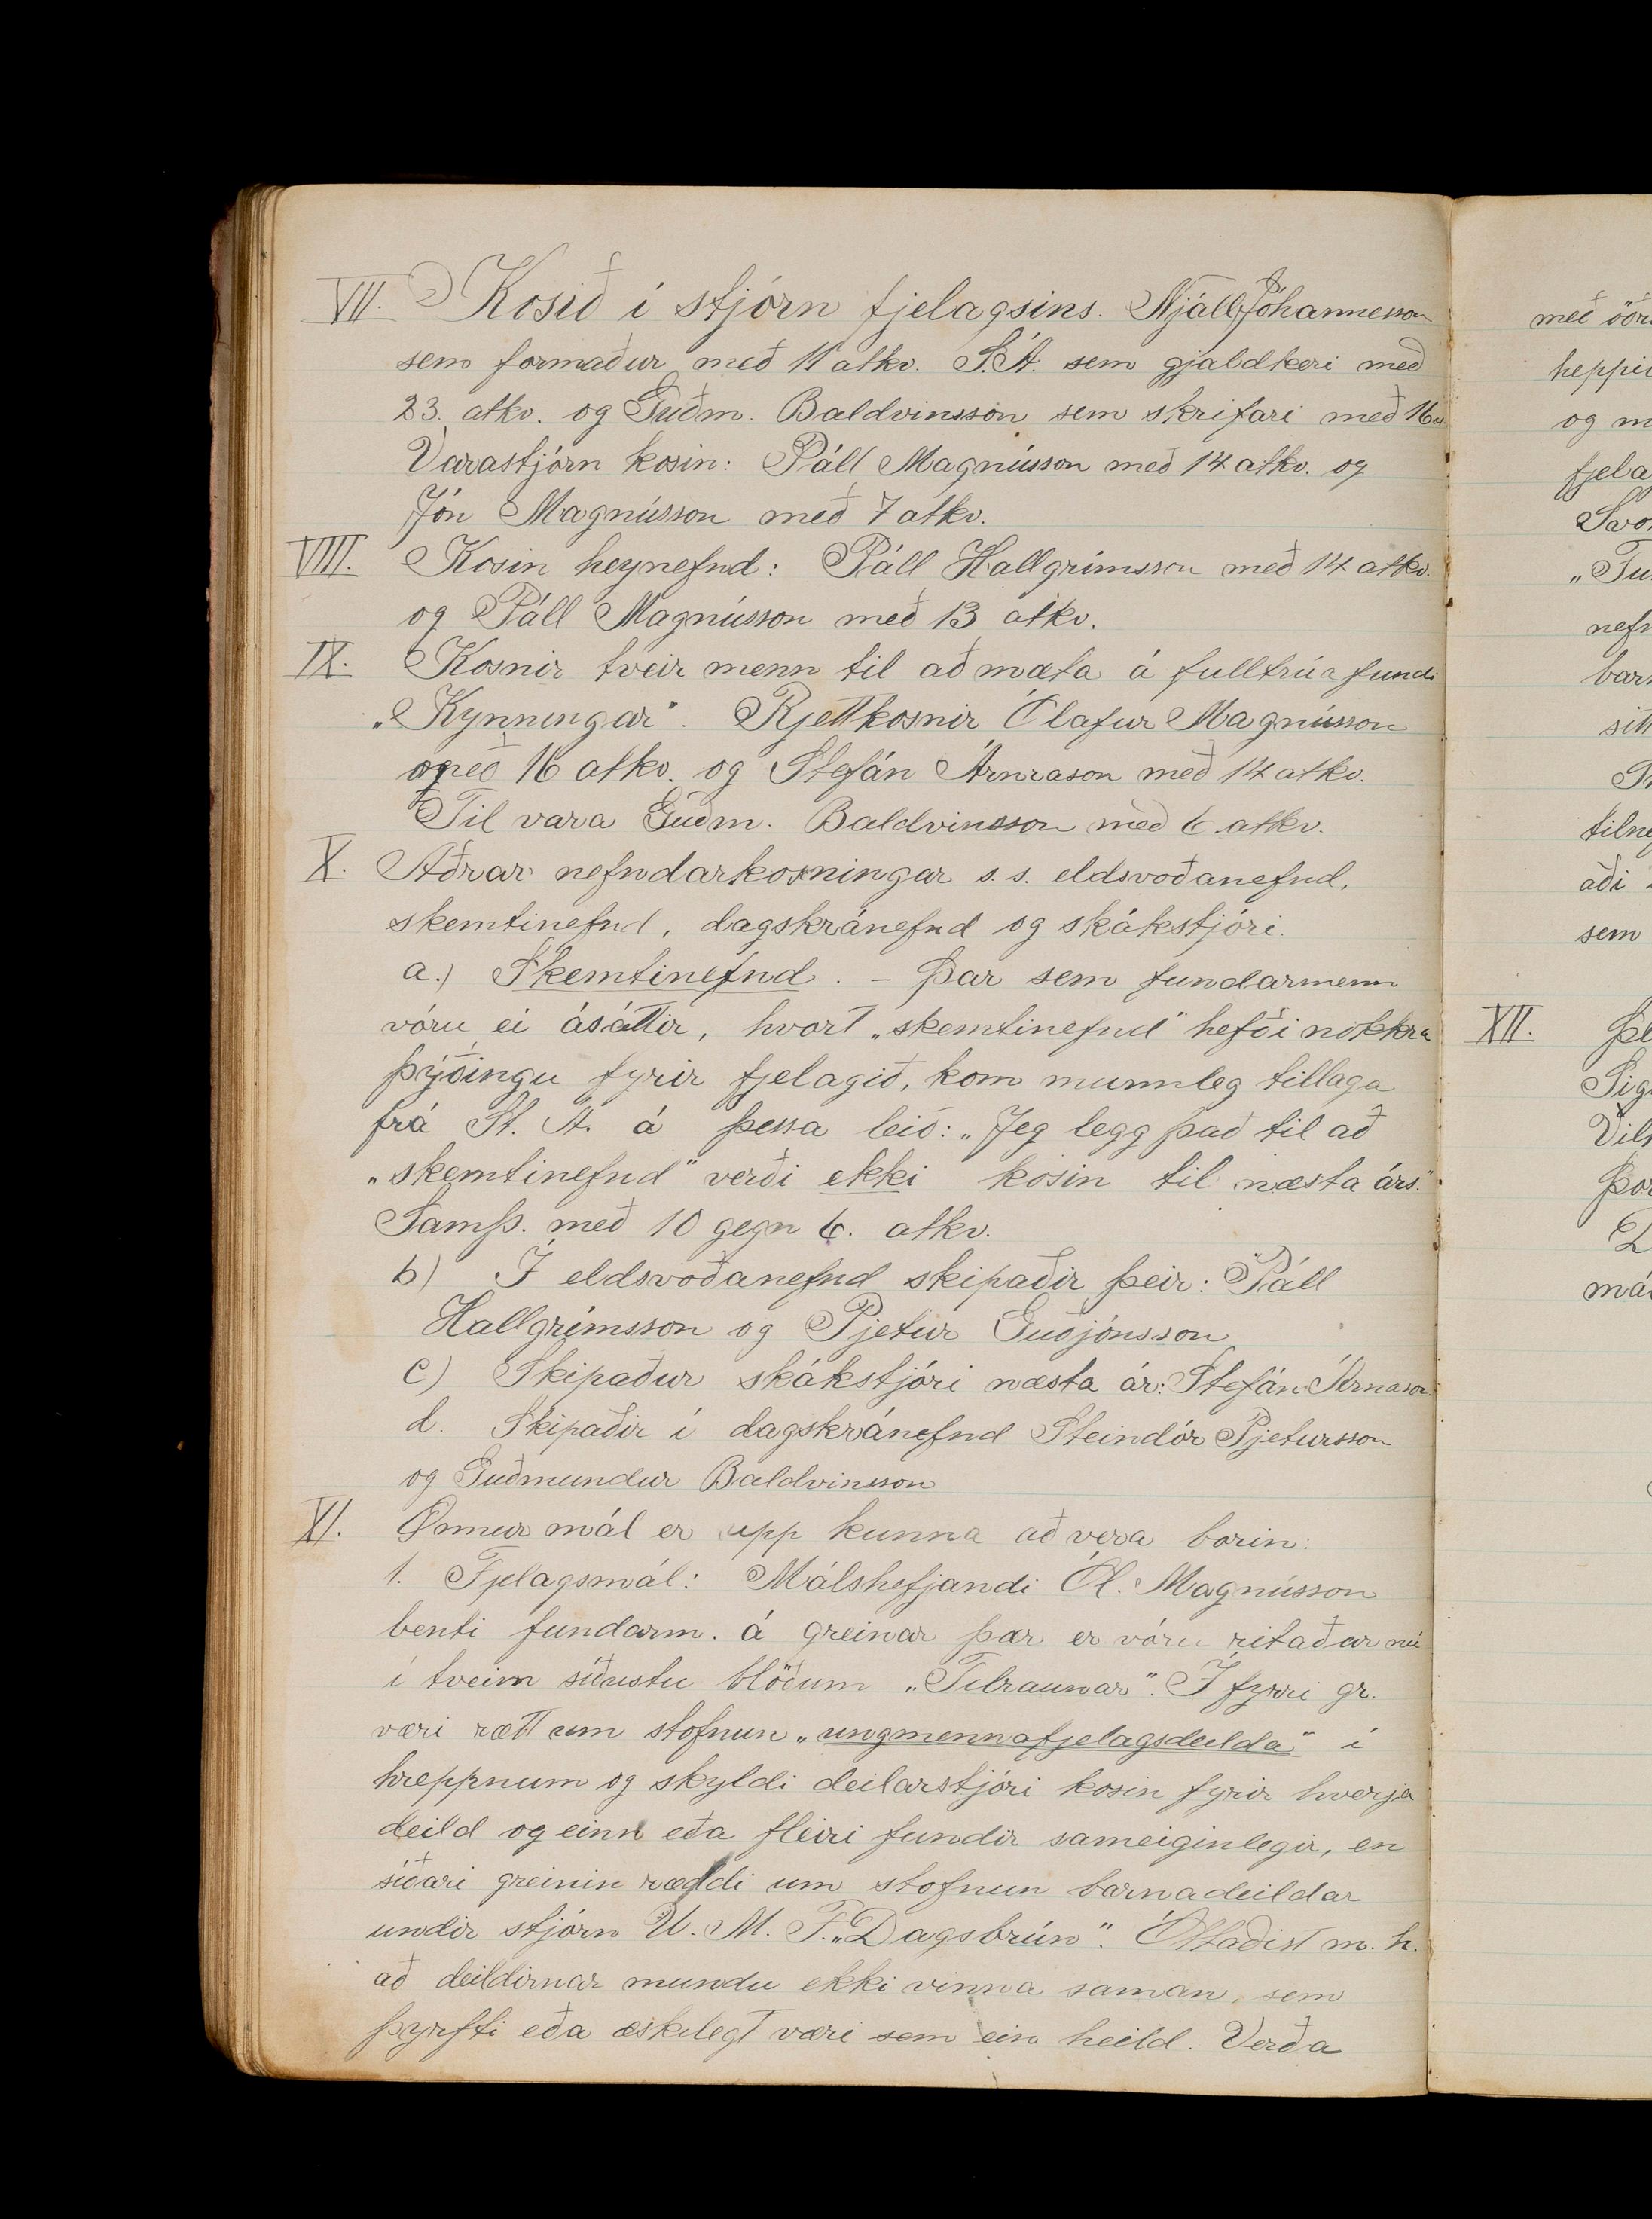 VII. Kosið í stjórn fjelagsins. Njáll Jóhannesson
sem formaður með 11 atkv. S.A. sem gjaldkeri með
23. atkv. og Guðm. Baldvinsson sem skrifari með 16 a.
Varastjórn kosin: Páll Magnússon með 14 atkv. og
Jón Magnússon með 7 atkv.
VIII. Kosin heynefnd: Páll Hallgrímsson með 14 atkv.
og Páll Magnússon með 13 atkv.
IX. Kosnir tveir menn til að mæta á fulltrúafundi
„Kynningar". Rjettkosnir Ólafur Magnússon
með 16 atkv. og Stefán Árnason með 14 atkv.
Til vara Guðm. Baldvinsson með 6 atkv.
X. Aðrar nefndarkosningar s.s. eldsvoðanefnd,
skemtinefnd, dagskránefnd og skákstjóri.
a.) Skemtinefnd. – Þar sem fundarmenn
vóru ei ásáttir, hvort „skemtinefnd" hefði nokkra
þýðingu fyrir fjelagið, kom munnleg tillaga
frá St. A. á þessa leið: „Jeg legg það til að
„skemtinefnd" verði ekki kosin til næsta árs."
Samþ. með 10 gegn 6. atkv.
b) Í eldsvoðanefnd skipaðir þeir: Páll
Hallgrímsson og Pjetur Guðjónsson
c) Skipaður skákstjóri næsta ár: Stefán Árnason
d. Skipaðir í dagskránefnd Steindór Pjetursson
og Guðmundur Baldvinsson
XI. Önnur mál er upp kunna að vera borin:
1. Fjelagsmál: Málshefjandi Ól. Magnússon
benti fundarm. á greinar þær er vóru ritaðar nú
í tveim síðustu blöðum „Tilraunar". Í fyrri gr.
væri rætt um stofnun „ungmennafjelagsdeilda" í
hreppnum og skyldi deilarstjóri kosin fyrir hverja
deild og einn eða fleiri fundir sameiginlegir, en
síðari greinin ræddi um stofnun barnadeildar
undir stjórn U. M. F. „Dagsbrún". Óttaðist m. h.
að deildirnar mundu ekki vinna saman, sem
þyrfti eða æskilegt væri sem ein heild. Verða
með öðr
heppi
og m
fjela
Svo
nefn
bar
sitt
tilne
aði
sem
XII. Þe
Sig
Vil
Þor
má